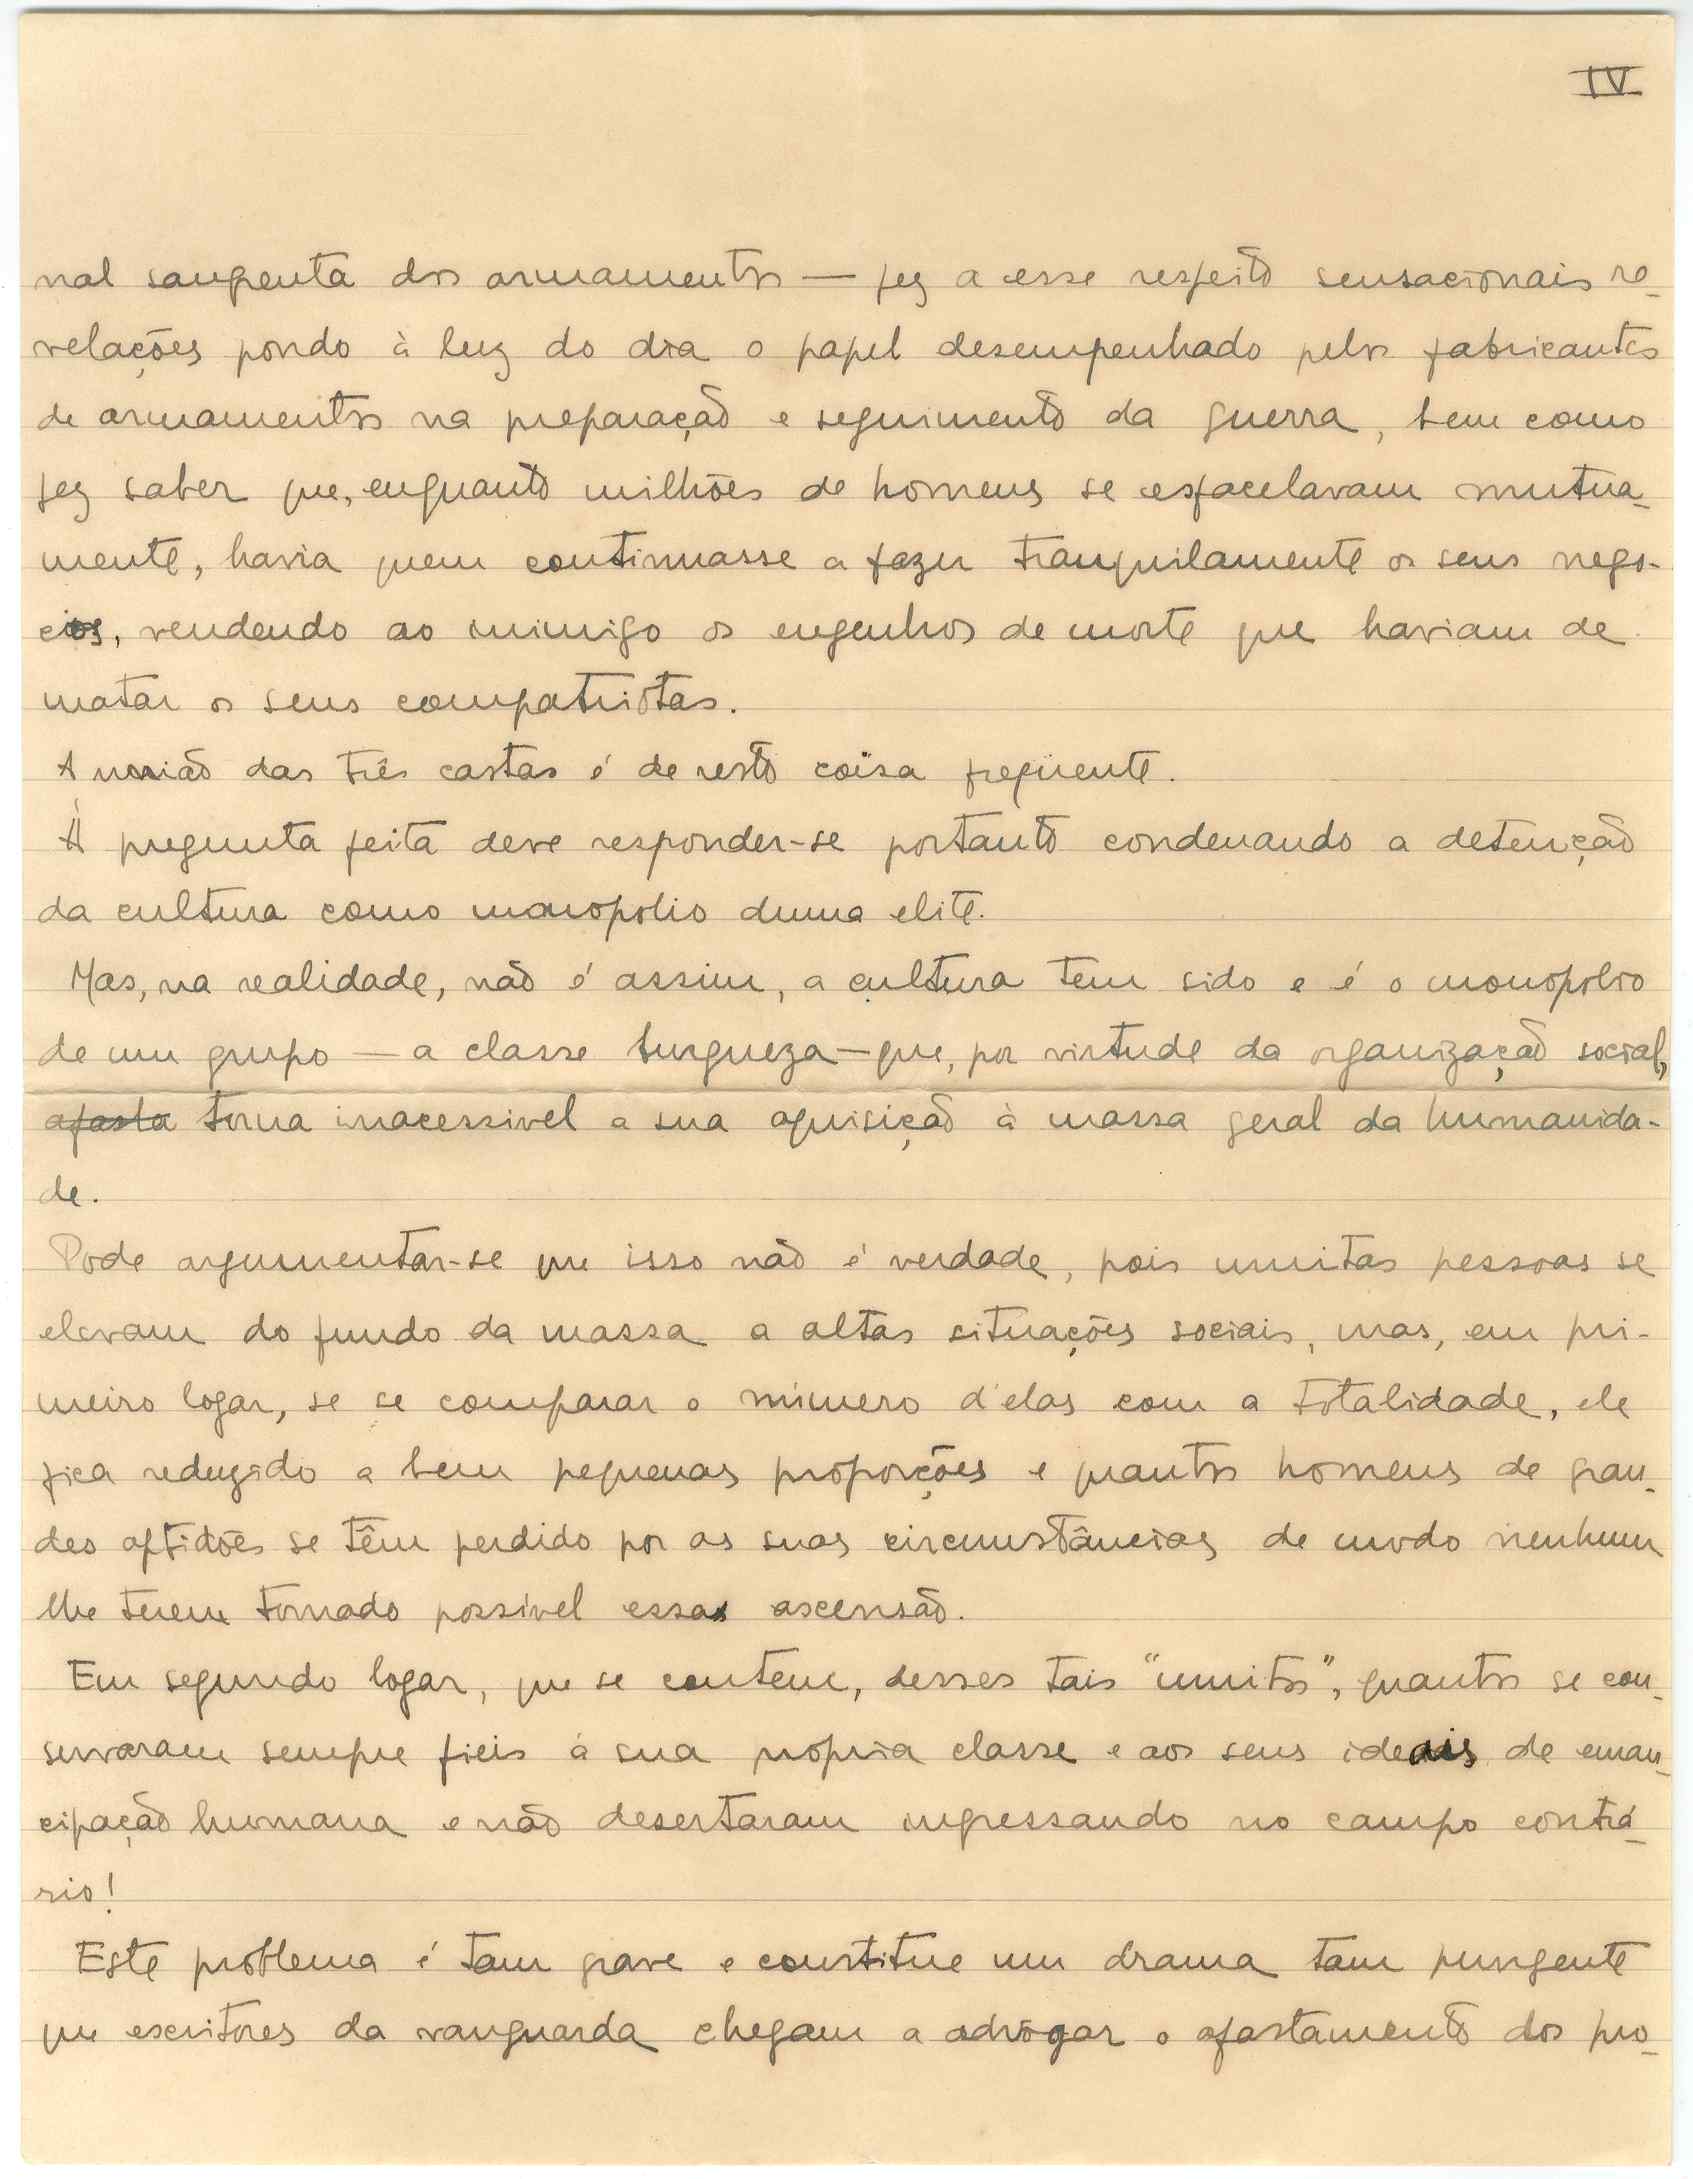 IV
nal sangrenta dos armamentos — fez a esse respeito sensacionais re-
velações pondo à luz do dia o papel desempenhado pelos fabricantes
de armamentos na preparação e seguimento da guerra, bem como
fez saber que, enquanto milhões de homens se esfacelavam mutua-
mente, havia quem continuasse a fazer tranquilamente os seus nego-
cios, vendendo ao inimigo os engenhos de morte que haviam de
matar os seus compatriotas.
A união das três castas é de resto coïsa freqüente.
Á pregunta feita deve responder-se portanto condenando a detenção
da cultura como monopolio duma elite.
Mas, na realidade, não é assim, a cultura tem sido e é o monopolio
de um grupo — a classe burgueza — que, por virtude da organização social,
afasta torna inacessivel a sua aquisição à massa geral da humanida-
de.
Pode argumentar-se que isso não é verdade, pois muitas pessoas se
elevam do fundo da massa a altas situações sociais, mas, em pri-
meiro logar, se se comparar o número d'elas com a totalidade, ele
fica reduzido a bem pequenas proporções e quantos homens de gran-
des aptidões se têm perdido por as suas circunstâncias de modo nenhum
lhe terem tornado possível essa ascensão.
Em segundo logar, que se contem, desses tais "muitos", quantos se con-
servaram sempre fieis á sua propria classe e aos seus ideais de eman-
cipação humana e não desertaram ingressando no campo contrá-
rio!
Este problema é tam grave e constitue um drama tam pungente
que escritores da vanguarda chegam a advogar o afastamento dos pro-